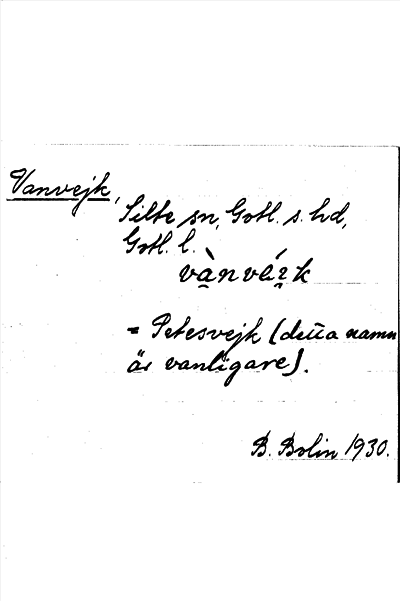 Vanvejk,
Silte sn, Gotl. s. hd,
Gotl. l.
= Petesvejk (detta namn
är vanligare).
B. Bolin 1930.